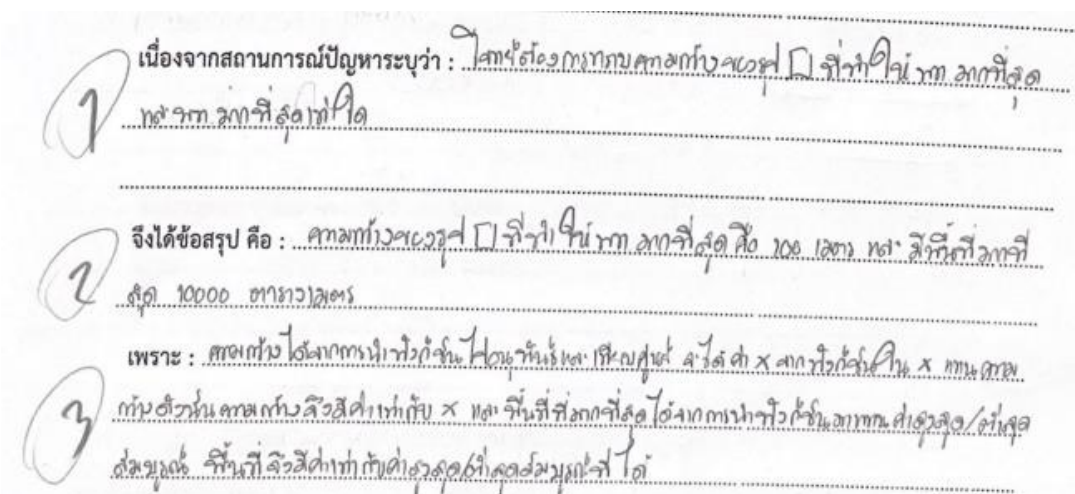 1 เนื่องจากสถานการณ์ปัญหาระบุว่า : โจทย์ต้องการทราบความกว้างของรูป □ ที่ทำให้ พท. มากที่สุด
และ พท. มากที่สุดเท่าใด
2 จึงได้ข้อสรุป คือ : ความกว้างของรูป □ ที่ทำให้ พท. มากที่สุด คือ 100 เมตร และ มีพื้นที่มากที่
สุด 10000 ตารางเมตร
3 เพราะ : ความกว้างได้จากการนำฟังก์ชันไปอนุพันธ์และเทียบศูนย์ จะได้ค่า x จากฟังก์ชันใน x แทนความ
กว้างดังนั้นความกว้างจึงมีค่าเท่ากับ x และ พื้นที่ที่มากที่สุดได้จากการนำฟังก์ชันมาหาค่าสูงสุด/ต่ำสุด
สัมบูรณ์ พื้นที่จึงมีค่าเท่ากับค่าสูงสุด/ต่ำสุดสัมบูรณ์ที่ได้